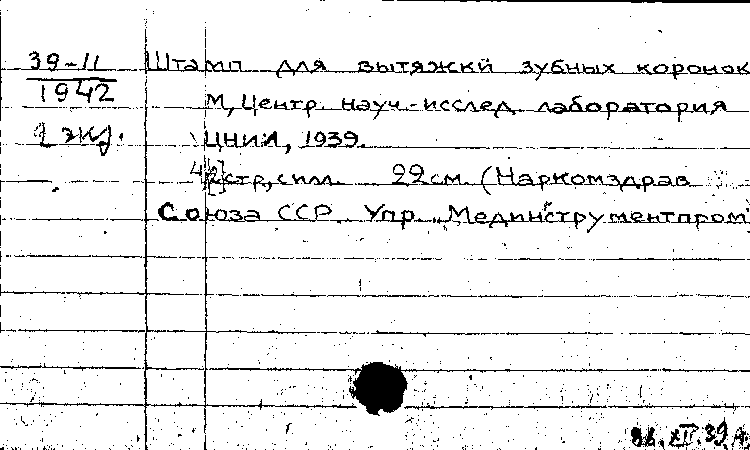 39-11
1942
2 экз.
Штамп для вытяжки зубных коронок
М, Центр. науч.-исслед. лаборатория
ЦНИЛ, 1939.
стр, с илл. 22 см. (Наркомздрав
Союза ССР. Упр. „Мединструментпром"
XII.39